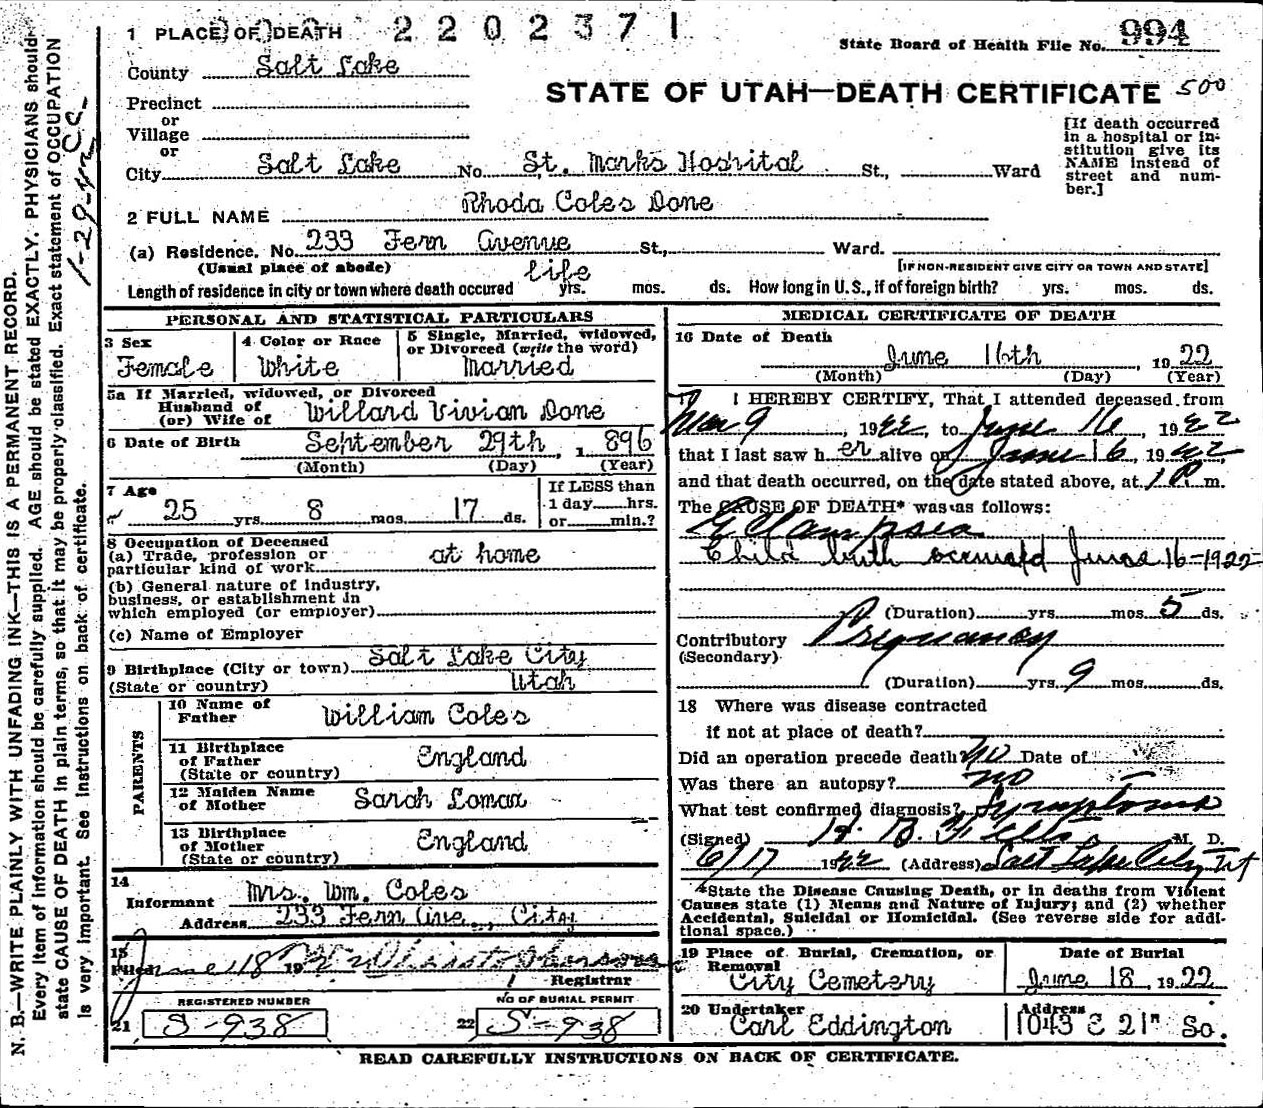 1 PLACE OF DEATH 2202371
State Board of Health File No. 994
County Salt Lake
STATE OF UTAH—DEATH CERTIFICATE 500
Precinct
or
Village
or
City Salt Lake No. St. Marks Hospital St., Ward
[If death occurred
in a hospital or in-
stitution give its
NAME instead of
street and num-
ber.]
2 FULL NAME Rhoda Coles Done
(a) Residence. No. 233 Fern Avenue St., Ward.
(Usual place of abode) [IF NON-RESIDENT GIVE CITY OR TOWN AND STATE]
Length of residence in city or town where death occured life yrs. mos. ds. How long in U. S., if of foreign birth? yrs. mos. ds.
PERSONAL AND STATISTICAL PARTICULARS
3 Sex
Female
4 Color or Race
White
5 Single, Married, widowed,
or Divorced (write the word)
Married
5a If Married, widowed, or Divorced
Husband of
(or) Wife of Willard Vivian Done
6 Date of Birth September 29th, 1896
(Month) (Day) (Year)
7 Age
25 yrs. 8 mos. 17 ds.
If LESS than
1 day hrs.
or min.?
8 Occupation of Deceased
(a) Trade, profession or
particular kind of work at home
(b) General nature of industry,
business, or establishment in
which employed (or employer)
(c) Name of Employer
9 Birthplace (City or town) Salt Lake City
(State or country) Utah
PARENTS
10 Name of
Father William Coles
11 Birthplace
of Father England
(State or country)
12 Maiden Name
of Mother Sarah Lomax
13 Birthplace
of Mother England
(State or country)
14
Informant Mrs. Wm. Coles
Address 233 Fern Ave., City
15
Filed June 18 19
Registrar
REGISTERED NUMBER
21 S-938
NO OF BURIAL PERMIT
22 S-938
MEDICAL CERTIFICATE OF DEATH
16 Date of Death
June 16th 1922
(Month) (Day) (Year)
17 I HEREBY CERTIFY, That I attended deceased from
Mar 9, 1922, to June 16, 1922
that I last saw her alive on June 16, 1922,
and that death occurred, on the date stated above, at 1 P. m.
The CAUSE OF DEATH* was as follows:
Eclampsia
Child birth occurred June 16-1922
(Duration) yrs. mos. 5 ds.
Contributory Pregnancy
(Secondary)
(Duration) yrs. 9 mos. ds.
18 Where was disease contracted
if not at place of death?
Did an operation precede death? No Date of
Was there an autopsy? no
What test confirmed diagnosis? Symptoms
(Signed) M. D.
6/17 1922 (Address) Salt Lake City Ut
*State the Disease Causing Death, or in deaths from Violent
Causes state (1) Means and Nature of Injury; and (2) whether
Accidental, Suicidal or Homicidal. (See reverse side for addi-
tional space.)
19 Place of Burial, Cremation, or
Removal
City Cemetery
Date of Burial
June 18, 1922
20 Undertaker
Carl Eddington
Address
1043 E 21st So.
READ CAREFULLY INSTRUCTIONS ON BACK OF CERTIFICATE.
N. B.—WRITE PLAINLY WITH UNFADING INK—THIS IS A PERMANENT RECORD.
Every item of information should be carefully supplied. AGE should be stated EXACTLY. PHYSICIANS should
state CAUSE OF DEATH in plain terms, so that it may be properly classified. Exact statement of OCCUPATION
is very important. See instructions on back of certificate.